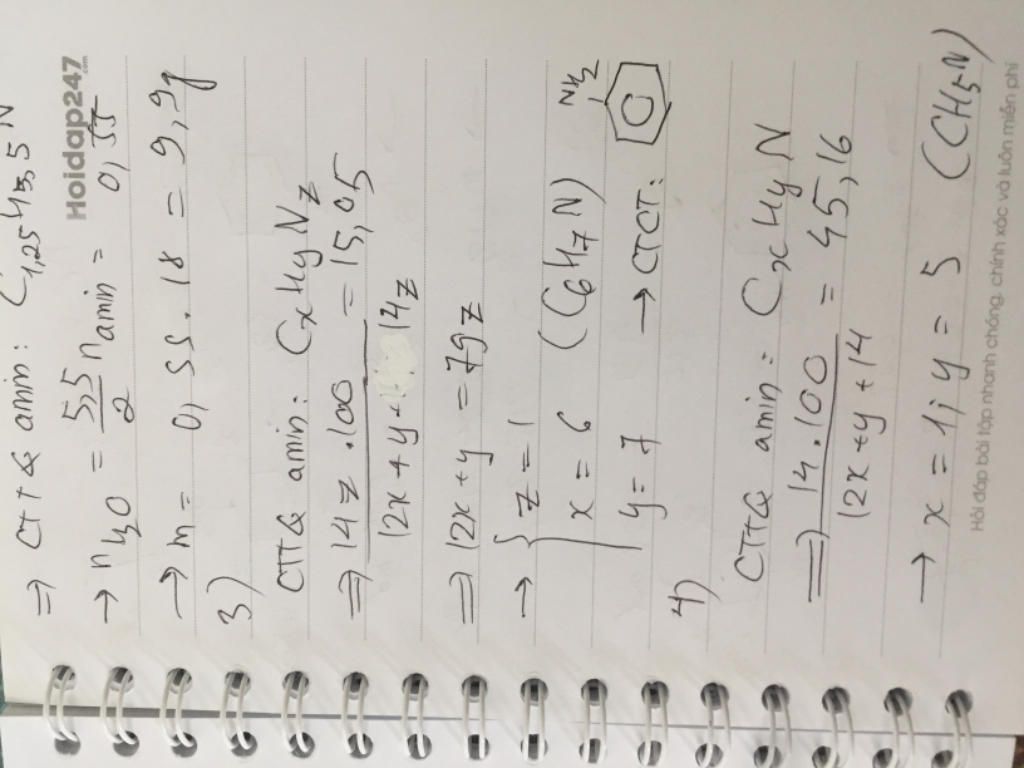 ⇒ CTTQ amin: C1,25H5,5N
Hoidap247
.com
→ nH2O = 5,5/2 namin = 0,55
→ m = 0,55.18 = 9,9g
3)
CTTQ amin: CxHyNz
⇒ 14z.100/12x+y+14z = 15,05
⇒ 12x+y = 79z
→ { z = 1
x = 6 (C6H7N)
y = 7 → CTCT:
NH2
4)
CTTQ amin: CxHyN
⇒ 14.100/12x+y+14 = 45,16
→ x = 1; y = 5 (CH5N)
Hỏi đáp bài tập nhanh chóng, chính xác và luôn miễn phí